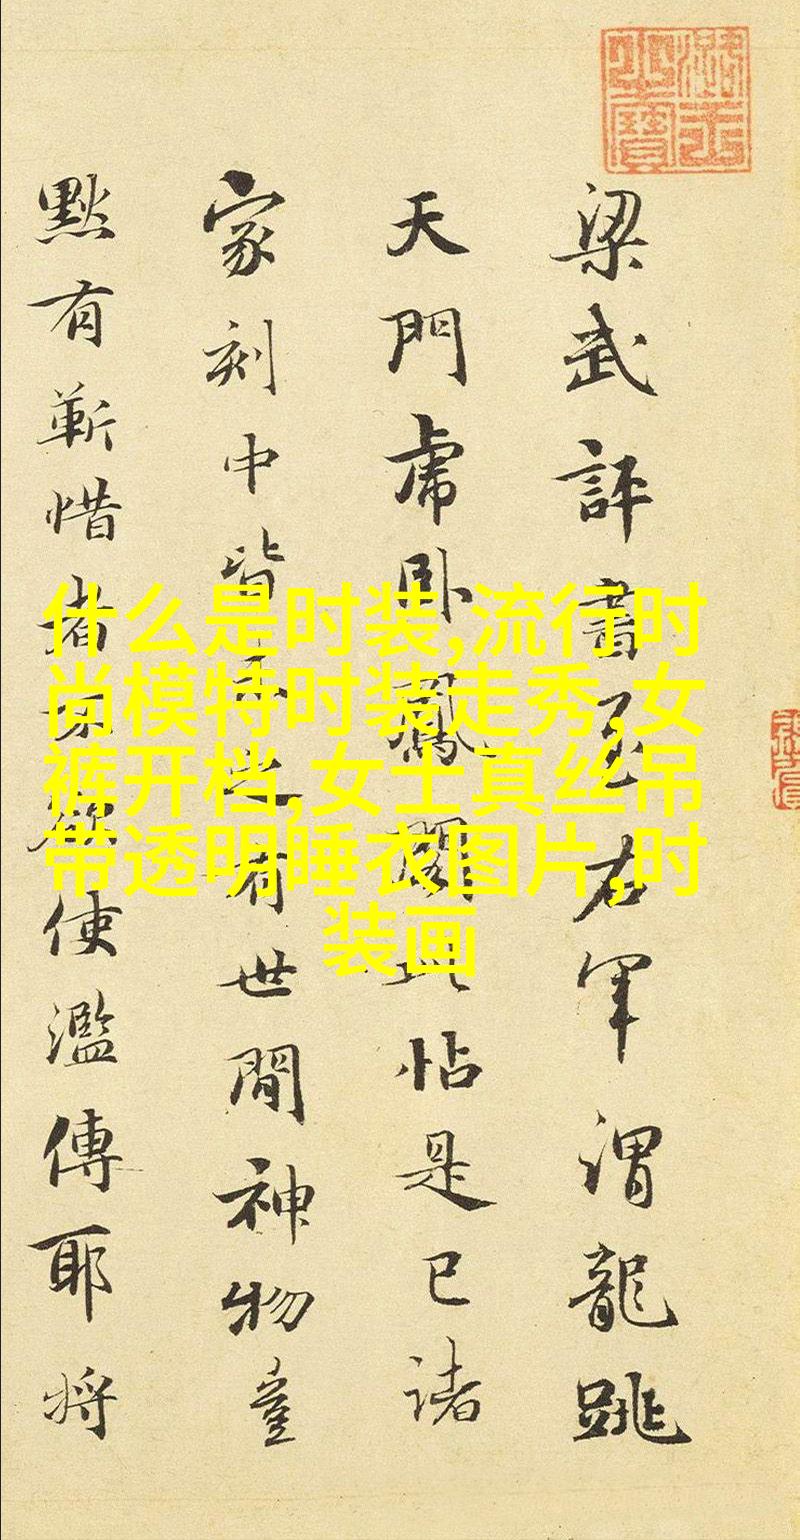 梁武評書至右軍謂龍跳
天門虎卧鳳閣此帖是已諸
家刻中皆之有世間神物豈
黙有靳惜者使濫傳耶將
什么是时装,流行时
尚模特时装走秀,女
裤开档,女士真丝吊
带透明睡衣图片,时
装画